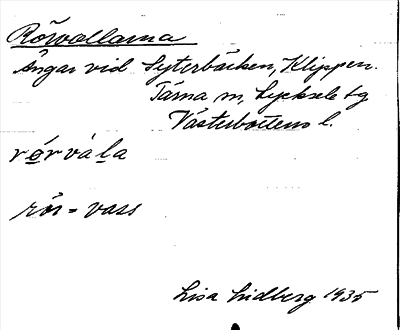 Rörvallarna
Ängar vid Syterbäcken, Klippen.
Tärna sn, Lycksele tg
Västerbottens l.
rörvála
rör = vass
Lisa Lidberg 1935